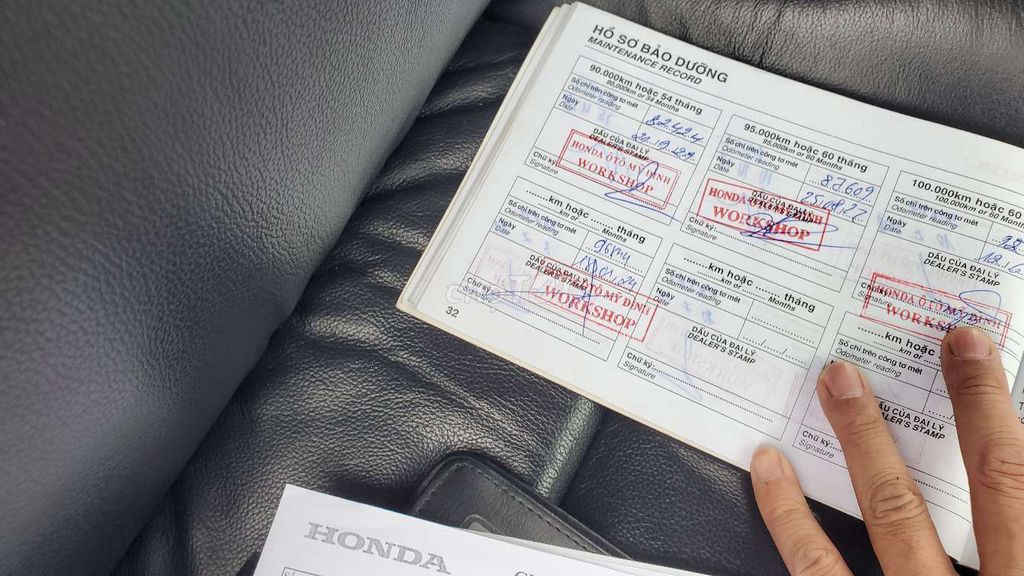 HỒ SƠ BẢO DƯỠNG
MAINTENANCE RECORD
90.000km hoặc 54 tháng
90,000km or 54 Months
Số chỉ trên công tơ mét
Odometer reading
82.424
Ngày
Date
DẤU CỦA ĐẠI LÝ
DEALER'S STAMP
HONDA ÔTÔ MỸ ĐÌNH
WORKSHOP
Chữ ký
Signature
95.000km hoặc 60 tháng
95,000km or 60 Months
Số chỉ trên công tơ mét
Odometer reading
88.609
Ngày
Date
25.08.22
DẤU CỦA ĐẠI LÝ
DEALER'S STAMP
HONDA ÔTÔ MỸ ĐÌNH
WORKSHOP
Chữ ký
Signature
100.000km hoặc 60
100,000km or 60
Số chỉ trên công tơ mét
Odometer reading
Ngày
Date
DẤU CỦA ĐẠI LÝ
DEALER'S STAMP
HONDA ÔTÔ MỸ ĐÌNH
WORKSHOP
Chữ ký
Signature
......km hoặc ...... tháng
......km or ...... Months
Số chỉ trên công tơ mét
Odometer reading
Ngày
Date
DẤU CỦA ĐẠI LÝ
DEALER'S STAMP
HONDA ÔTÔ MỸ ĐÌNH
WORKSHOP
Chữ ký
Signature
......km hoặc ...... tháng
......km or ...... Months
Số chỉ trên công tơ mét
Odometer reading
Ngày
Date
DẤU CỦA ĐẠI LÝ
DEALER'S STAMP
Chữ ký
Signature
......km hoặc
......km or
Số chỉ trên công tơ mét
Odometer reading
DẤU CỦA ĐẠI LÝ
DEALER'S STAMP
Chữ ký
Signature
32
chợTỐT
HONDA